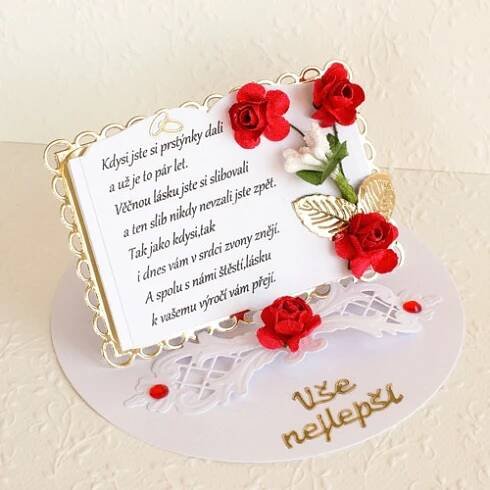 Kdysi jste si prstýnky dali
a už je to pár let.
Věčnou lásku jste si slibovali
a ten slib nikdy nevzali jste zpět.
Tak jako kdysi,tak
i dnes vám v srdci zvony znějí.
A spolu s námi štěstí,lásku
k vašemu výročí vám přejí.
Vše
nejlepší